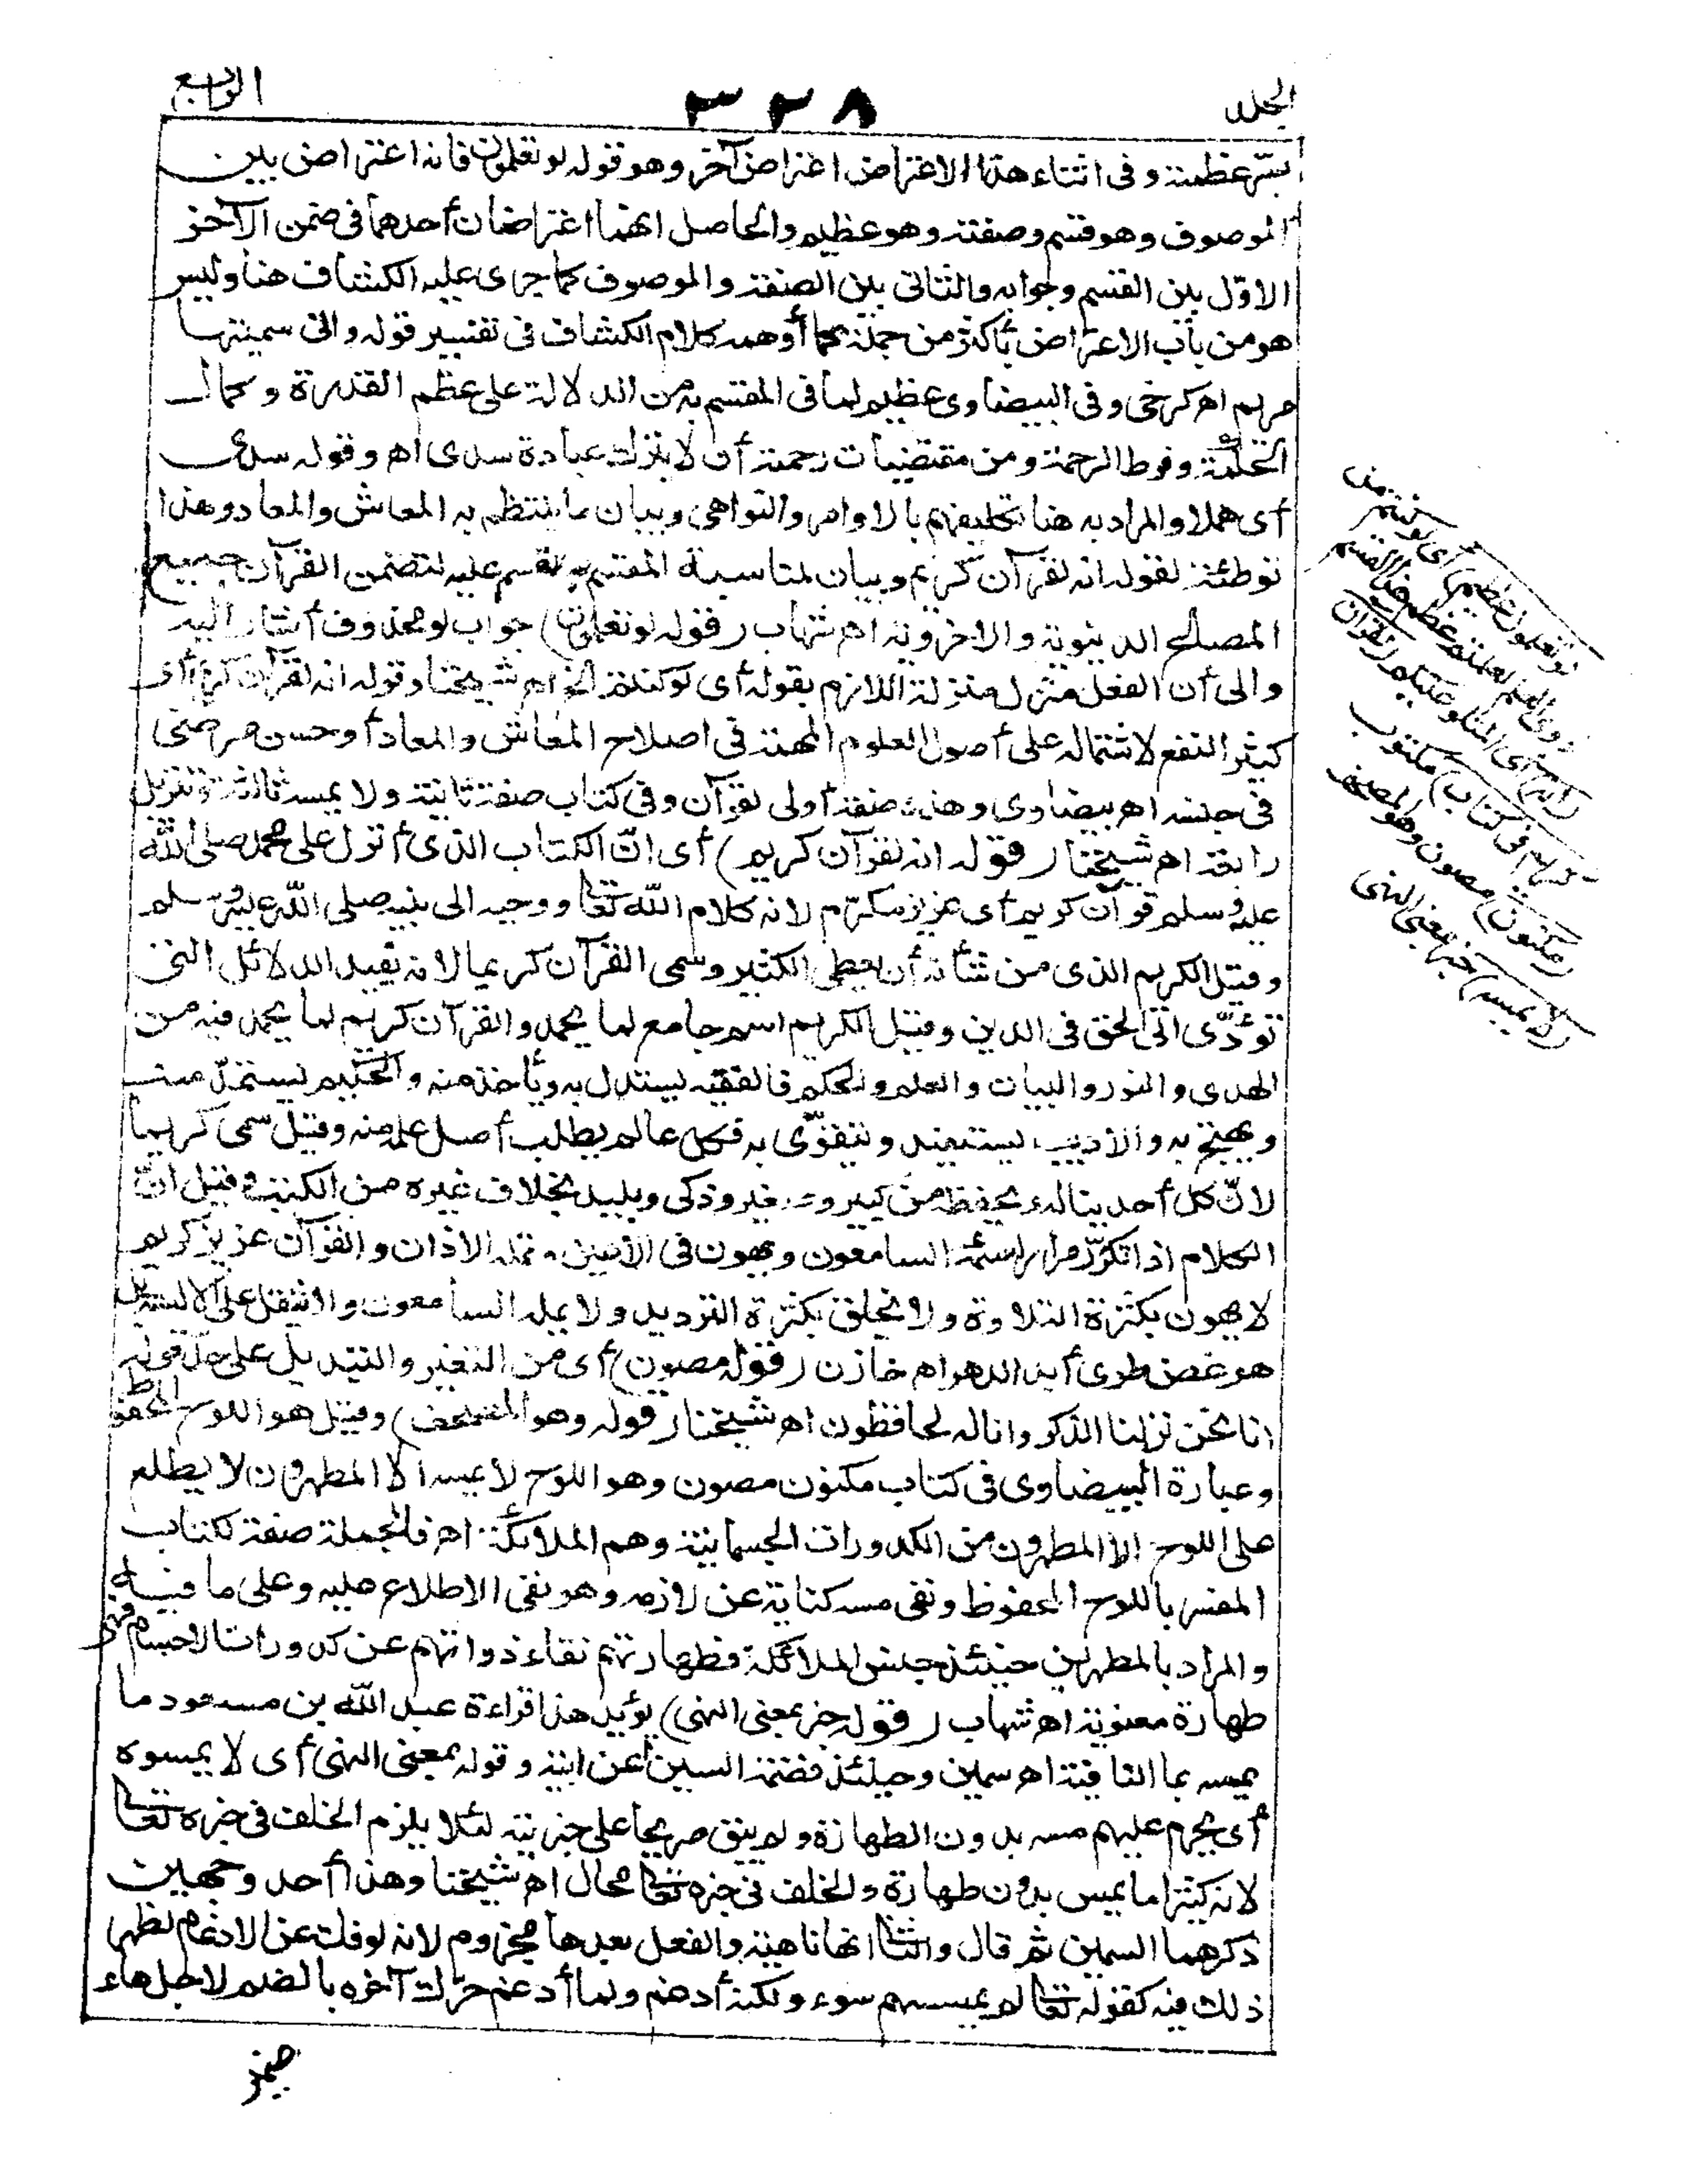 الجلد
٣٢٨
الرابع
بيّن عظمته وفى اثناء هذا الاعتراض اعتراض آخر وهو قوله لو تعلمون فانه اعتراض بين
الموصوف وهو قسم وصفته وهو عظيم والحاصل انهما اعتراضان أحدهما فى ضمن الآخر
الاوّل بين القسم وجوابه والثانى بين الصفة والموصوف كما جرى عليه الكشاف هنا وليس
هو من باب الاعتراض بأكثر من جملة كما أوهمه كلام الكشاف فى تفسير قوله وانى سميتها
مريم اه كرخى وفى البيضاوى عظيم لما فى المقسم به من الدلالة على عظم القدرة وكمال
الحكمة وفرط الرحمة ومن مقتضيات رحمته أن لا يترك عباده سدى اه وقوله سدى
أى هملا والمراد به هنا تكليفهم بالاوامر والنواهى وبيان ما ينتظم به المعاش والمعاد وهذا
توطئة لقوله انه لقرآن كريم وبيان لمناسبة المقسم به للمقسم عليه لتضمن القرآن جميع
المصالح الدنيوية والاخروية اه شهاب (قوله لو تعلمون) جواب لو محذوف أشار اليه
والى أن الفعل منزل منزلة اللازم بقوله أى لو كنتم الخ اه شيخنا وقوله انه لقرآن كريم أى
كثير النفع لاشتماله على أصول العلوم المهمة فى اصلاح المعاش والمعاد أو حسن مرضىّ
فى جنسه اه بيضاوى وهذه صفة أولى لقرآن وفى كتاب صفة ثانية ولا يمسه ثالثة وتنزيل
رابعة اه شيخنا (قوله انه لقرآن كريم) أى انّ الكتاب الذى أنزل على محمد صلى الله
عليه وسلم قرآن كريم أى عزيز مكرّم لانه كلام الله تعالى ووحيه الى نبيه صلى الله عليه وسلم
وقيل الكريم الذى من شأنه أن يعطى الكثير وسمى القرآن كريما لانه يفيد الدلائل التى
تؤدّى الى الحق فى الدين وقيل الكريم اسم جامع لما يحمد والقرآن كريم لما يحمد فيه من
الهدى والنور والبيان والعلم والحكم فالفقيه يستدل به ويأخذ منه والحكيم يستمدّ منه
ويحتج به والاديب يستفيد ويتقوّى به فكل عالم يطلب أصل علمه منه وقيل سمى كريما
لانّ كل أحد يناله ويحفظه من كبير وصغير وذكى وبليد بخلاف غيره من الكتب وقيل انّ
الكلام اذا تكرّر مرارا سئمه السامعون ويهون فى الاعين وتمله الآذان والقرآن عزيز كريم
لا يهون بكثرة التلاوة ولا يخلق بكثرة الترديد ولا يمله السامعون ولا يثقل على الالسنة بل
هو غض طرى أبد الدهر اه خازن (قوله مصون) أى من التغير والتبديل على حدّ قوله
انا نحن نزلنا الذكر وانا له لحافظون اه شيخنا (قوله وهو المصحف) وقيل هو اللوح المحفوظ
وعبارة البيضاوى فى كتاب مكنون مصون وهو اللوح لا يمسه الا المطهرون لا يطلع
على اللوح الا المطهرون من الكدورات الجسمانية وهم الملائكة اه فالجملة صفة لكتاب
المفسر باللوح المحفوظ ونفى مسه كناية عن لازمه وهو نفى الاطلاع عليه وعلى ما فيه
والمراد بالمطهرين حينئذ جنس الملائكة فطهارتهم نقاء ذواتهم عن كدورات الاجسام فهى
طهارة معنوية اه شهاب (قوله خبر بمعنى النهى) يؤيد هذا قراءة عبد الله بن مسعود ما
يمسه بما النافية اه سمين وحينئذ فضمة السين اعرابية وقوله بمعنى النهى أى لا يمسوه
أى يحرم عليهم مسه بدون الطهارة ولم يبق صريحا على خبريته لئلا يلزم الخلف فى خبره تعالى
لانه كثيرا ما يمس بدون طهارة والخلف فى خبره تعالى محال اه شيخنا وهذا أحد وجهين
ذكرهما السمين ثم قال والثانى انها ناهية والفعل بعدها مجزوم لانه لو فك عن الادغام لظهر
ذلك فيه كقوله تعالى لم يمسسهم سوء ولكنه أدغم ولما أدغم حرّك آخره بالضم لاجل هاء
ضمير
لو تعلمون عظيم) أى لو كنتم من
ذوى العلم لعلمتم عظم هذا القسم
(انه) أى المتلو عليكم (لقرآن
كريم فى كتاب) مكتوب
(مكنون) مصون وهو المصحف
(لا يمسه) خبر بمعنى النهى